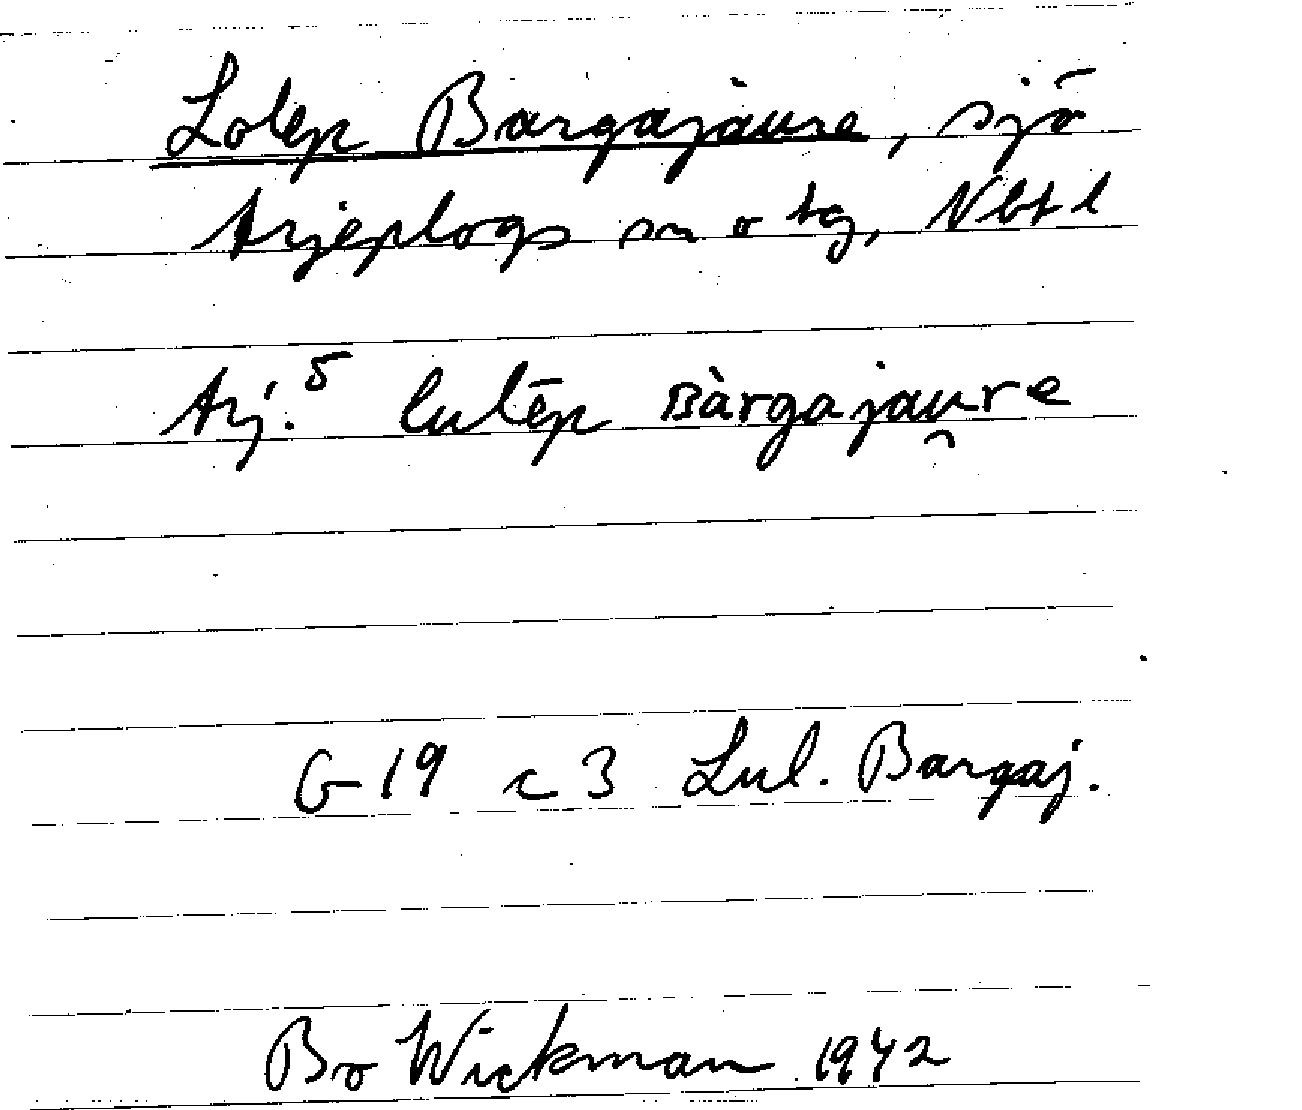 Lolep Bargajaure, sjö
Arjeplogs sn o tg, Nbtl
Arj.5 lulēp Bàrgajau̯re
G 19 c 3 Lul. Bargaj.
Bo Wickman 1942